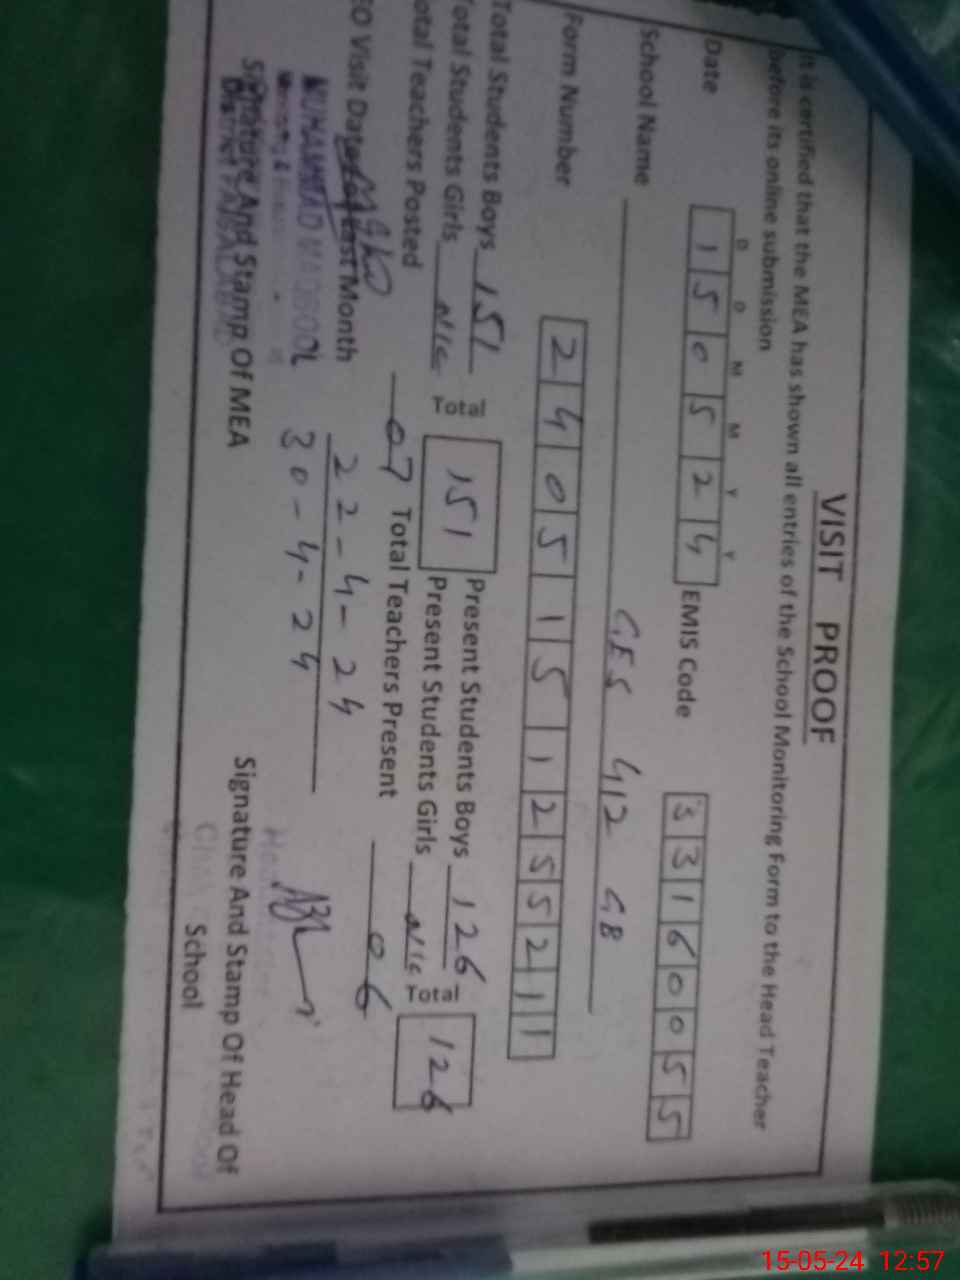 VISIT PROOF
It is certified that the MEA has shown all entries of the School Monitoring Form to the Head Teacher
before its online submission
D D M M Y Y
Date 1 5 0 5 2 4 EMIS Code 3 3 1 6 0 0 5 5
School Name GES 412 GB
Form Number 2 4 0 5 1 5 1 2 5 5 2 1 1
Total Students Boys 151 Total 151 Present Students Boys 126 Total 126
Total Students Girls nil Present Students Girls nil
otal Teachers Posted 07 Total Teachers Present 06
EO Visit Date Last Month 22-4-24
30-4-24
MUHAMMAD MAQBOOL
Signature And Stamp Of MEA Signature And Stamp Of Head Of
School
15-05-24 12:57